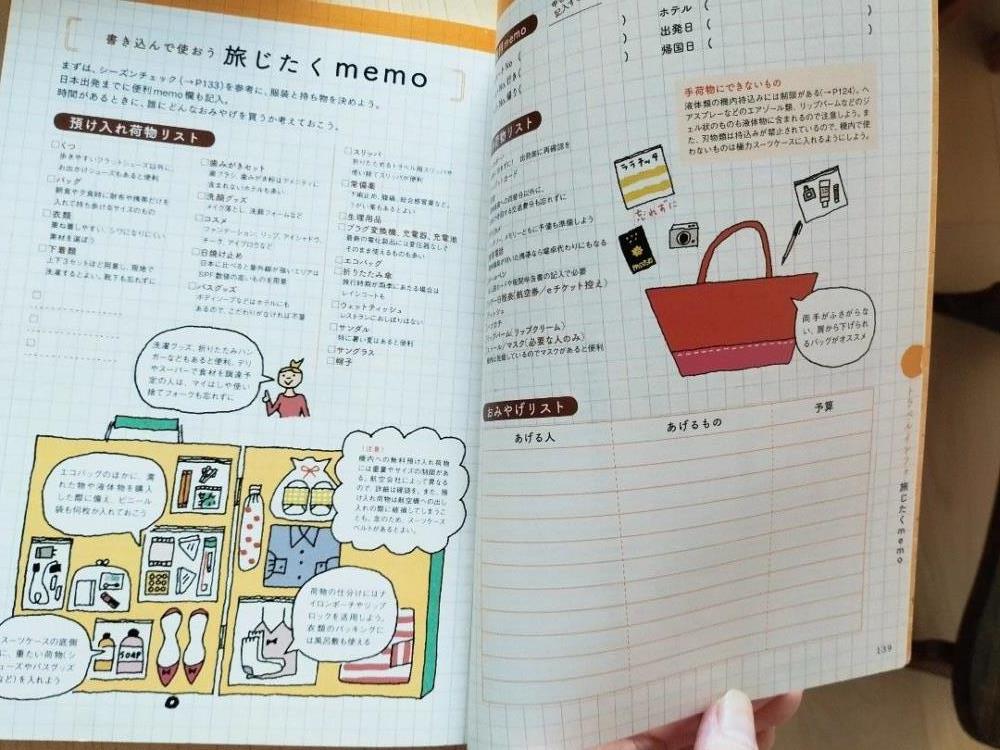 書き込んで使おう 旅じたくmemo
まずは、シーズンチェック(→P133)を参考に、服装と持ち物を決めよう。
日本出発までに便利memo欄も記入。
時間があるときに、誰にどんなおみやげを買うか考えておこう。
預け入れ荷物リスト
□くつ
歩きやすいフラットシューズ以外に、
お出かけシューズもあると便利
□バッグ
朝食や夕食時に財布や携帯だけを
入れて持ち歩けるサイズのもの
□衣類
重ね着しやすい、シワになりにくい
素材を選ぼう
□下着類
上下3セットほど用意し、現地で
洗濯するとよい。靴下も忘れずに
□
□
□
□歯みがきセット
歯ブラシ、歯みがき粉はアメニティに
含まれないホテルも多い
□洗顔グッズ
メイク落とし、洗顔フォームなど
□コスメ
ファンデーション、リップ、アイシャドウ、
チーク、アイブロウなど
□日焼け止め
日本に比べると紫外線が強いエリアは
SPF数値の高いものを用意
□バスグッズ
ボディソープなどはホテルにも
あるので、こだわりがなければ不要
□スリッパ
折りたためるトラベル用スリッパや
使い捨てスリッパが便利
□常備薬
下痢止め、腹痛、総合感冒薬など。
うがい薬もあるとよい
□生理用品
□プラグ変換機、充電器、充電池
最新の電化製品には変圧器なしで
そのまま使えるものも多い
□エコバッグ
□折りたたみ傘
旅行時期が雨季にあたる場合は
レインコートも
□ウェットティッシュ
レストランにおしぼりはない
□サンダル
特に暑い夏はあると便利
□サングラス
□帽子
洗濯グッズ、折りたたみハン
ガーなどもあると便利。デリ
やスーパーで食材を調達予
定の人は、マイはしや使い
捨てフォークも忘れずに
エコバッグのほかに、濡
れた物や液体物を購入
した際に備え、ビニール
袋も何枚か入れておこう
(注意)
機内への無料預け入れ荷物
には重量やサイズの制限があ
る。航空会社によって異なる
ので、詳細は確認を。また、預
け入れ荷物は航空機への出し
入れの際に破損してしまうこ
とも。念のため、スーツケース
ベルトがあるとよい。
荷物の仕分けにはナ
イロンポーチやジップ
ロックを活用しよう。
衣類のパッキングに
は風呂敷も使える
スーツケースの底側
に、重たい荷物(シ
ューズやバスグッズ
など)を入れよう
SOAP
memo
ホテル (　)
出発日 (　)
帰国日 (　)
手荷物にできないもの
液体類の機内持込みには制限がある(→P124)。ヘ
アスプレーなどのエアゾール類、リップバームなどのジ
ェル状のものも液体物に含まれるので注意しよう。ま
た、刃物類は持込みが禁止されているので、機内で使
わないものは極力スーツケースに入れるようにしよう。
リスト
出発前に再確認を
忘れずに
メモリーともに予備も準備しよう
(航空券/eチケット控え)
(リップクリーム)
マスク(必要な人のみ)
乾燥しているのでマスクがあると便利
両手がふさがらな
い、肩から下げられ
るバッグがオススメ
おみやげリスト
あげる人
あげるもの
予算
旅じたくmemo
139